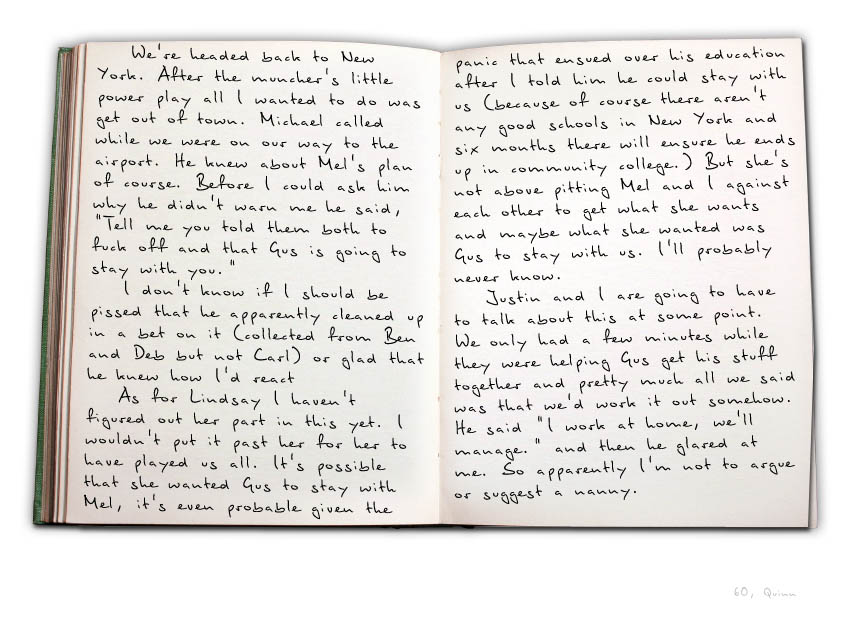 We're headed back to New
York. After the muncher's little
power play all I wanted to do was
get out of town. Michael called
while we were on our way to the
airport. He knew about Mel's plan
of course. Before I could ask him
why he didn't warn me he said,
"Tell me you told them both to
fuck off and that Gus is going to
stay with you."
I don't know if I should be
pissed that he apparently cleaned up
in a bet on it (collected from Ben
and Deb but not Carl) or glad that
he knew how I'd react
As for Lindsay I haven't
figured out her part in this yet. I
wouldn't put it past her for her to
have played us all. It's possible
that she wanted Gus to stay with
Mel, it's even probable given the
panic that ensued over his education
after I told him he could stay with
us (because of course there aren't
any good schools in New York and
six months there will ensure he ends
up in community college.) But she's
not above pitting Mel and I against
each other to get what she wants
and maybe what she wanted was
Gus to stay with us. I'll probably
never know.
Justin and I are going to have
to talk about this at some point.
We only had a few minutes while
they were helping Gus get his stuff
together and pretty much all we said
was that we'd work it out somehow.
He said "I work at home, we'll
manage." and then he glared at
me. So apparently I'm not to argue
or suggest a nanny.
60, Quinn